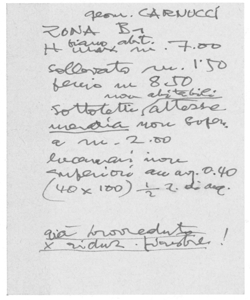 geom. CARNUCCI
ZONA B1
piano abit.
H max m. 7.00
sollevato m. 1.50
fercio m 8.50
non abitabile.
sottotetti, altezza
media non super.
a m. 2.00
lucernari non
superiore ad mq. 0.40
(40 x 100) 1/2 di mq.
già provveduto
x riduz. finestre!